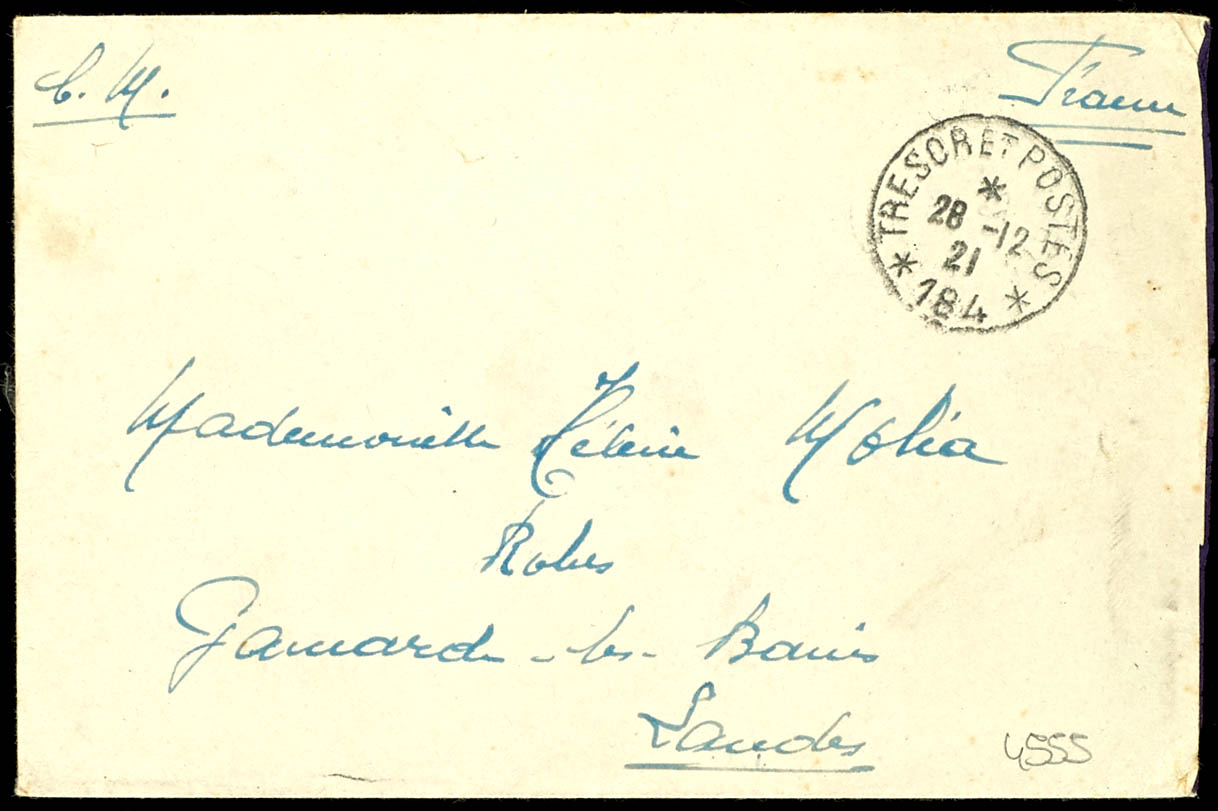 C. M.
France
TRESOR ET POSTES
*
28 -12
21
* 184 *
Mademoiselle Hélène Molia
Robes
Gamarde-les-Bains
Landes
4555